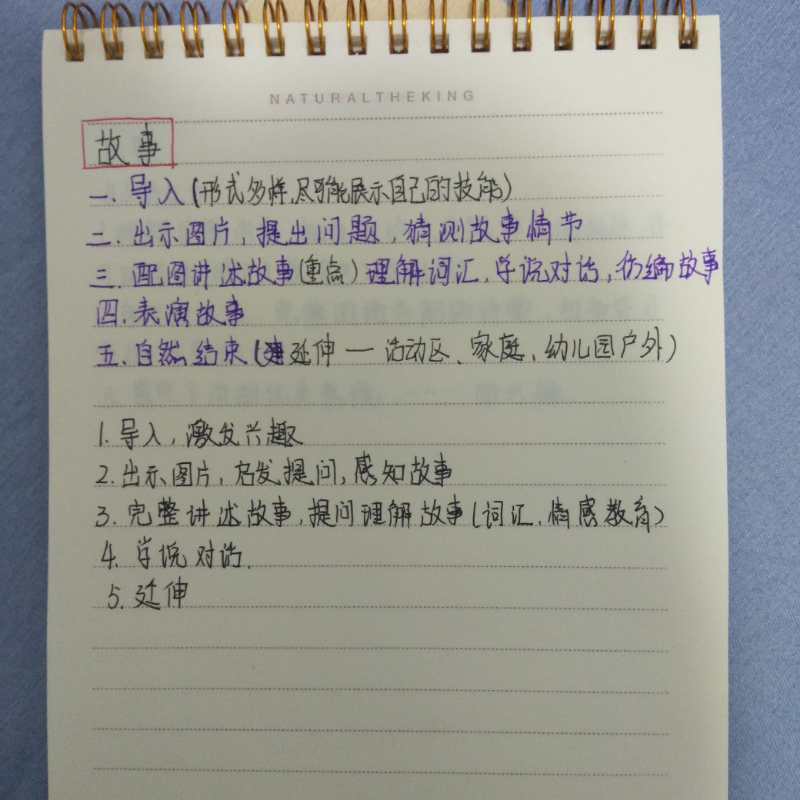 NATURALTHEKING
故事
一.导入(形式多样,尽可能展示自己的技能)
二.出示图片,提出问题,猜测故事情节
三.配图讲述故事(重点)理解词汇,学说对话,仿编故事
四.表演故事
五.自然结束(延伸—活动区、家庭、幼儿园户外)
1.导入,激发兴趣
2.出示图片,启发提问,感知故事
3.完整讲述故事,提问理解故事(词汇、情感教育)
4.学说对话.
5.延伸